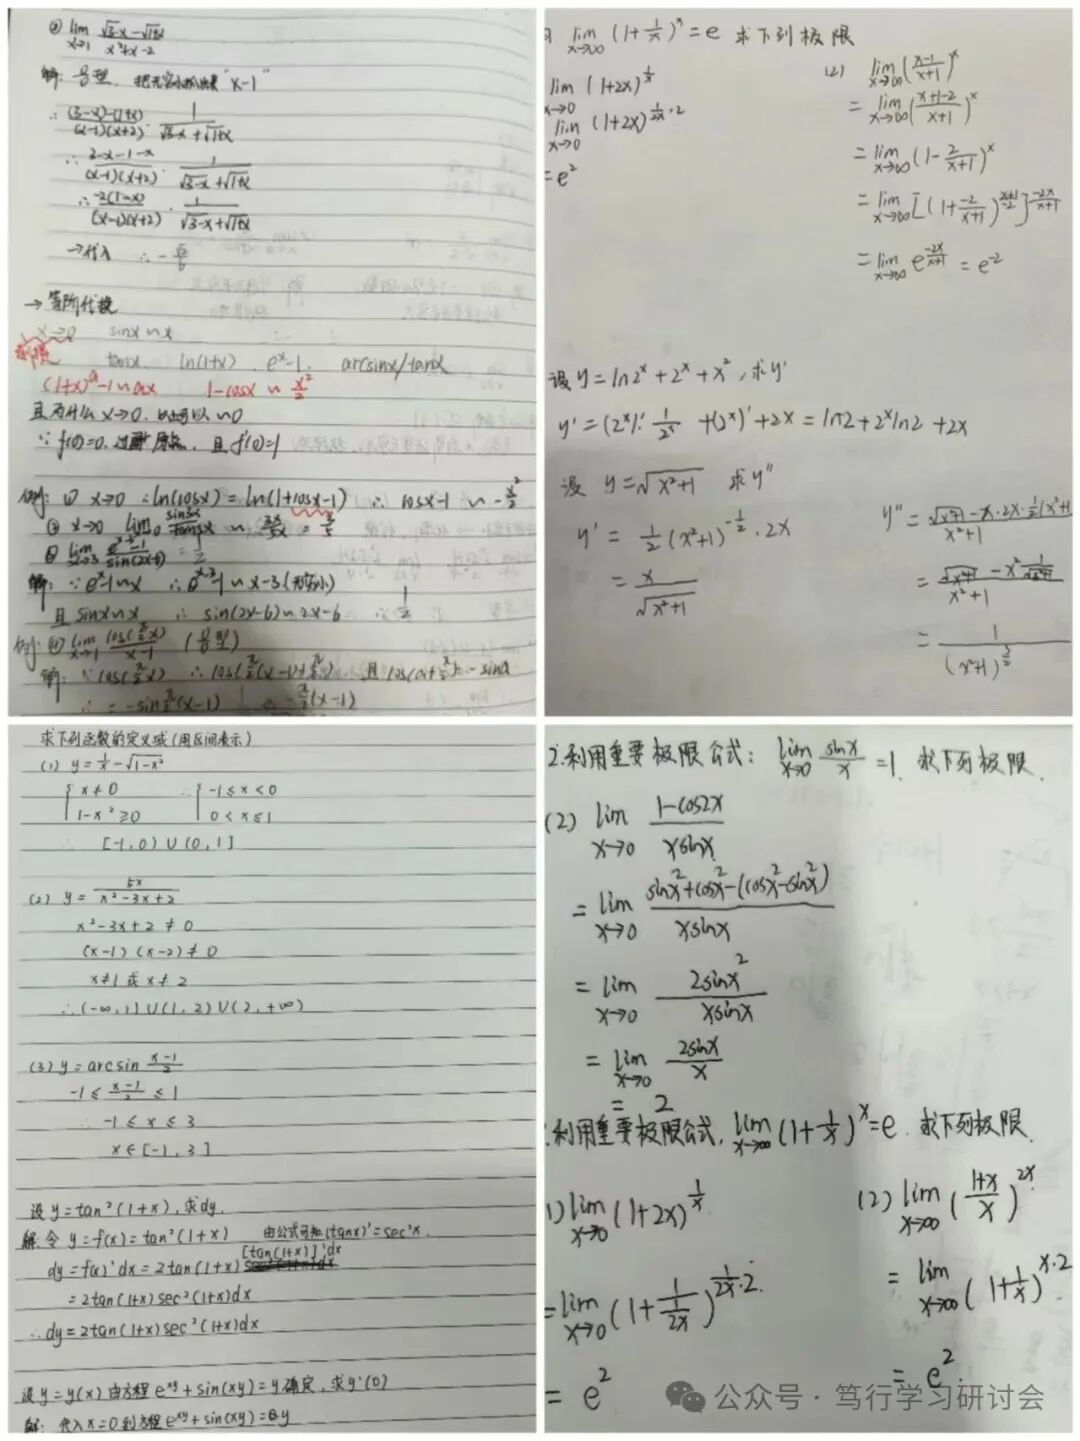 ② lim x→1 (√(3-x) - √(1+x))/(x²+x-2)
解: 0/0型, "x-1"
∴ ((3-x)-(1+x))/((x-1)(x+2)) · 1/(√(3-x)+√(1+x))
∴ (3-x-1-x)/((x-1)(x+2)) · 1/(√(3-x)+√(1+x))
∴ -2(1-x)/((x-1)(x+2)) · 1/(√(3-x)+√(1+x))
→代入 ∴ -√2/6
→ 等阶代换
x→0 sinx~x
tanx. ln(1+x). e^x-1. arcsinx/tanx
(1+x)^a-1~ax 1-cosx ~ x²/2
且为什么x→0.
∵ f(0)=0. 过原点, 且 f'(0)=1
例: ① x→0 ∴ ln(cosx)=ln(1+cosx-1) ∴ cosx-1 ~ -x²/2
② x→0 lim
解: ∵ e^x-1~x ∴ e^(x-3)-1~x-3
且 sinx~x ∴ sin(2x-6)~2x-6 ∴ 1/2
例: ④ lim x→1 cos(π/2 x)/(x-1) (0/0型)
解: ∵ cos(π/2 x) ∴ cos(π/2(x-1)+π/2) 且 cos(α+π/2)=-sinα
∴ = -sin π/2(x-1) ~ -π/2(x-1)
lim x→∞ (1+1/x)^x = e 求下列极限
lim x→0 (1+2x)^(1/x)
lim x→0 (1+2x)^(1/2x · 2)
= e²
(2) lim x→∞ ((x-1)/(x+1))^x
= lim x→∞ ((x+1-2)/(x+1))^x
= lim x→∞ (1-2/(x+1))^x
= lim x→∞ [(1+(-2)/(x+1))^((x+1)/-2)]^(-2x/(x+1))
= lim x→∞ e^(-2x/(x+1)) = e^-2
设 y=ln2^x+2^x+x², 求y'
y'=(2^x)'·1/2^x+(2^x)'+2x=ln2+2^x ln2+2x
设 y=√(x²+1) 求y''
y'= 1/2(x²+1)^(-1/2)·2x
= x/√(x²+1)
y''= (√(x²+1) - x·2x·1/2(x²+1
x²+1
= (√(x²+1) - x² 1/√(x²+1))/(x²+1)
= 1/(x²+1)^(3/2)
求下列函数的定义域(用区间表示)
(1) y=1/x-√(1-x²)
{x≠0 ∴ {-1≤x<0
{1-x²≥0 {0<x≤1
∴ [-1,0)∪(0,1]
(2) y=5x/(x²-3x+2)
x²-3x+2≠0
(x-1)(x-2)≠0
x≠1或x≠2
∴(-∞,1)∪(1,2)∪(2,+∞)
(3) y=arcsin (x-1)/2
-1≤(x-1)/2≤1
-1≤x≤3
x∈[-1,3]
设y=tan²(1+x),求dy.
解:令 y=f(x)=tan²(1+x) 由公式可知(tanx)'=sec²x.
dy=f(x)'dx=2tan(1+x)[tan(1+x)]'dx
=2tan(1+x)sec²(1+x)dx
∴dy=2tan(1+x)sec²(1+x)dx
设y=y(x)由方程e^xy+sin(xy)=y确定,求y'(0)
解: 代入x=0到方程e^xy+sin(xy)=y
2.利用重要极限公式: lim x→0 sinx/x =1. 求下列极限.
(2) lim x→0 (1-cos2x)/(xsinx)
= lim x→0 (sinx²+cosx²-(cosx²-sinx²))/(xsinx)
= lim x→0 2sinx²/(xsinx)
= lim x→0 2sinx/x
= 2
利用重要极限公式, lim x→∞ (1+1/x)^x=e. 求下列极限.
1) lim x→0 (1+2x)^(1/x)
= lim x→0 (1+1/(1/2x))^(1/2x · 2)
= e²
(2) lim x→∞ ((1+x)/x)^2x
= lim x→∞ (1+1/x)^(x·2)
= e².
公众号·笃行学习研讨会